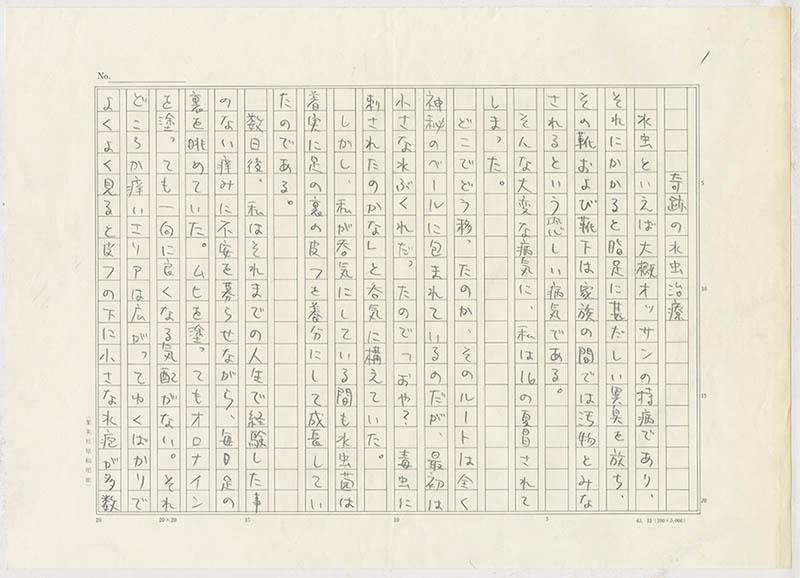 No.
奇跡の水虫治療
水虫といえば大概オッサンの持病であり、
それにかかると脂足に甚だしい異臭を放ち、
その靴および靴下は家族の間では汚物とみな
されるという恐しい病気である。
そんな大変な病気に、私は16の夏冒されて
しまった。
どこでどう移ったのか、そのルートは全く
神秘のベールに包まれているのだが、最初は
小さな水ぶくれだったので「おや？ 毒虫に
刺されたのかな」と呑気に構えていた。
しかし、私が呑気にしている間も水虫菌は
着実に足の裏の皮フを養分にして成長してい
たのである。
数日後、私はそれまでの人生で経験した事
のない痒みに不安を募らせながら、毎日足の
裏を眺めていた。ムヒを塗ってもオロナイン
を塗っても一向に良くなる気配がない。それ
どころか痒いエリアは広がってゆくばかりで
よくよく見ると皮フの下に小さな水疱が多数
5
10
15
20
（集英社原稿用紙）
20
20×20
15
10
5
63. 12 (100×3,000)